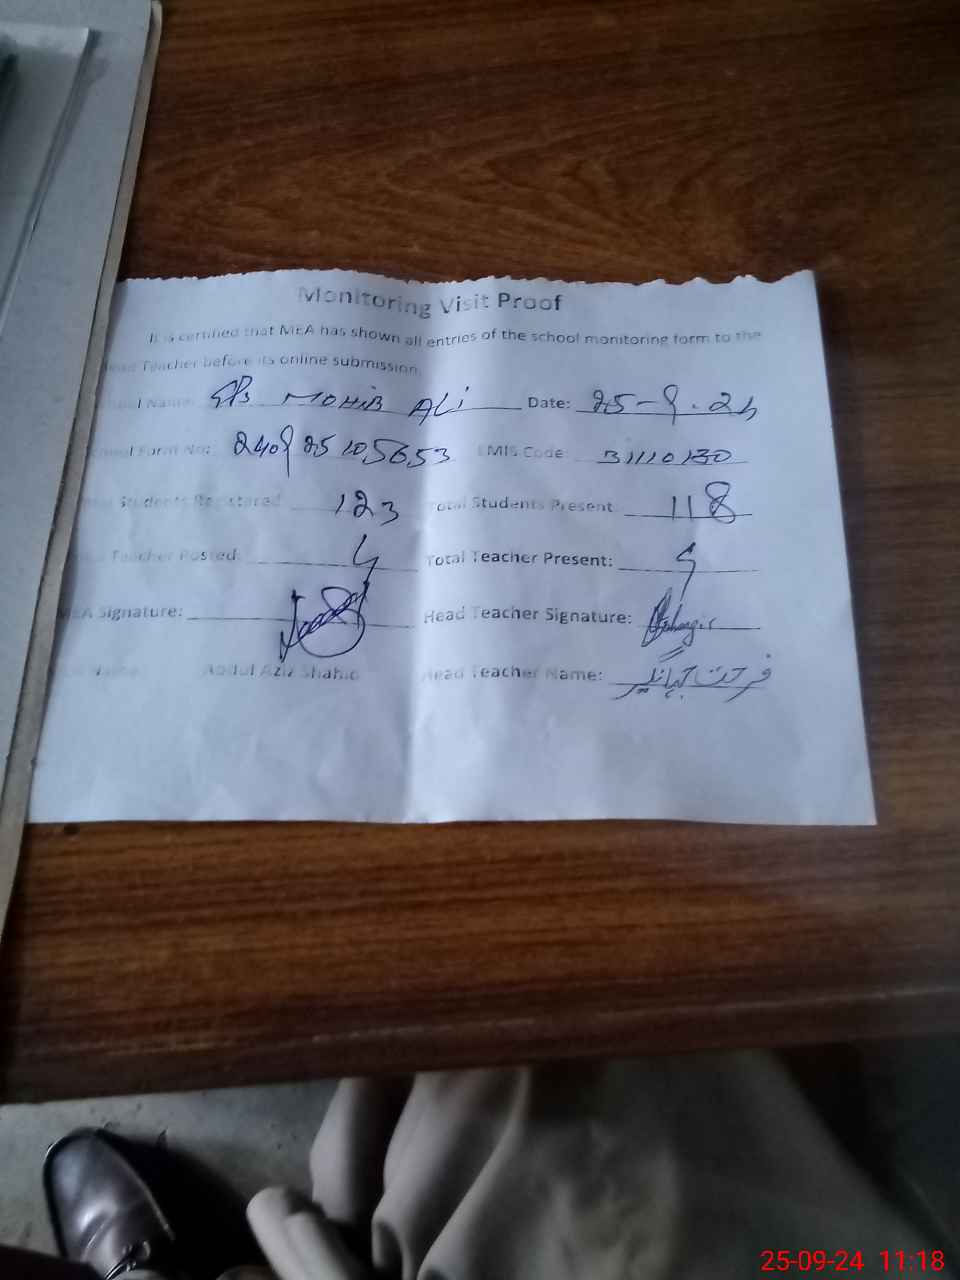 Monitoring Visit Proof
It is certified that MEA has shown all entries of the school monitoring form to the
Head Teacher before its online submission.
School Name: MOHIB ALI Date: 25-9-24
School Form No: EMIS Code: 31110130
Total Students Registered: 123 Total Students Present: 118
Total Teacher Posted: 4 Total Teacher Present: 4
MEA Signature: Head Teacher Signature:
Name: Abdul Aziz Shahid Head Teacher Name: فرحت جہانگیر
25-09-24 11:18